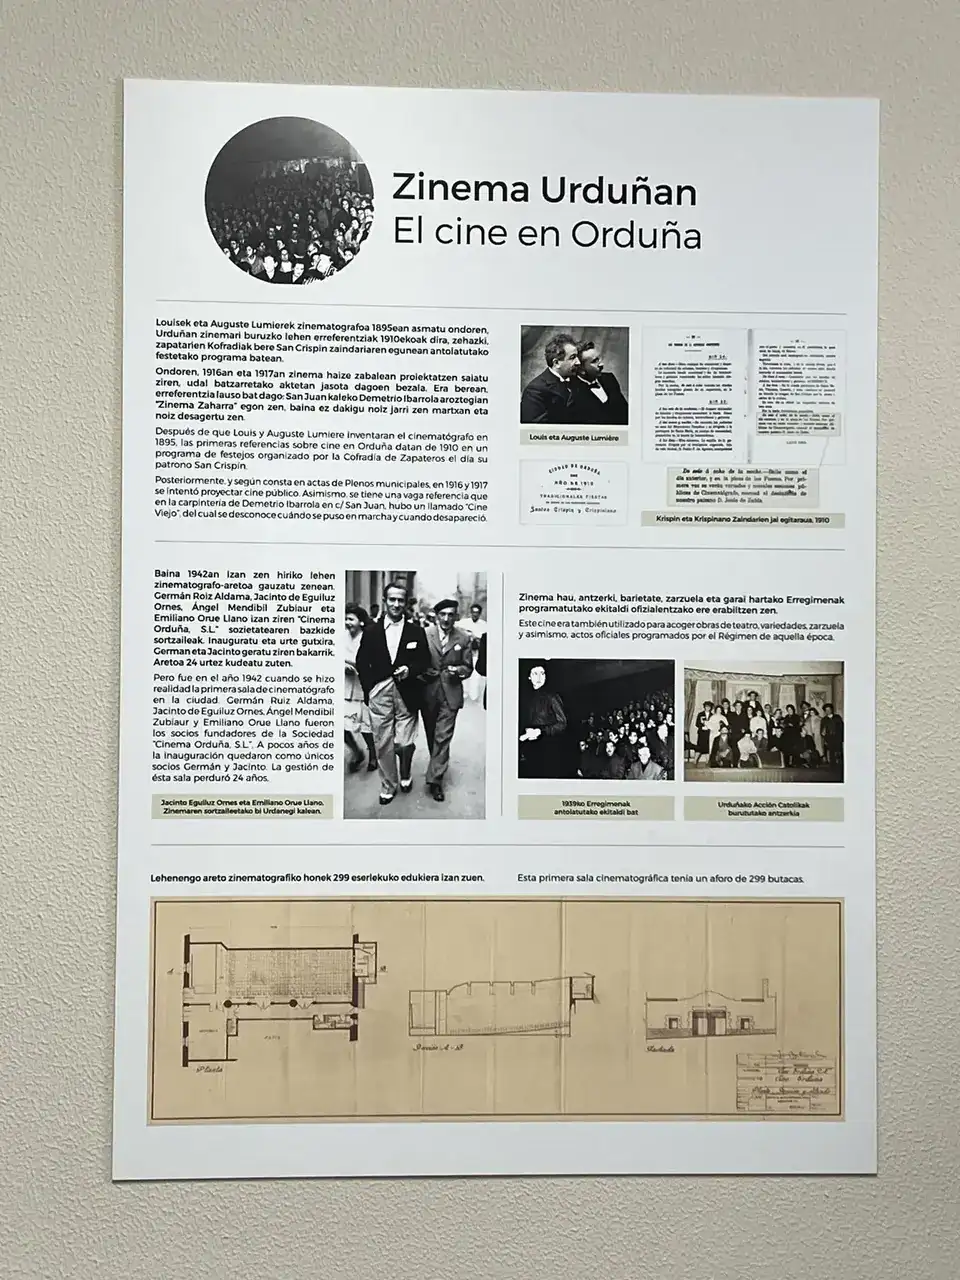 Zinema Urduñan
El cine en Orduña
Louisek eta Auguste Lumierek zinematografoa 1895ean asmatu ondoren,
Urduñan zinemari buruzko lehen erreferentziak 1910ekoak dira, zehazki,
zapatarien Kofradiak bere San Crispin zaindariaren egunean antolatutako
festetako programa batean.
Ondoren, 1916an eta 1917an zinema haize zabalean proiektatzen saiatu
ziren, udal batzarretako aktetan jasota dagoen bezala. Era berean,
erreferentzia lauso bat dago: San Juan kaleko Demetrio Ibarrola aroztegian
"Zinema Zaharra" egon zen, baina ez dakigu noiz jarri zen martxan eta
noiz desagertu zen.
Después de que Louis y Auguste Lumiere inventaran el cinematógrafo en
1895, las primeras referencias sobre cine en Orduña datan de 1910 en un
programa de festejos organizado por la Cofradía de Zapateros el día su
patrono San Crispín.
Posteriormente, y según consta en actas de Plenos municipales, en 1916 y 1917
se intentó proyectar cine público. Asimismo, se tiene una vaga referencia que
en la carpintería de Demetrio Ibarrola en c/ San Juan, hubo un llamado "Cine
Viejo", del cual se desconoce cuándo se puso en marcha y cuando desapareció.
Louis eta Auguste Lumière
CIUDAD DE ORDUÑA
AÑO DE 1910
TRADICIONALES FIESTAS
Santos Crispín y Crispiniano
De seis á ocho de la noche.—Baile como el
día anterior, y en la plaza de los Fueros. Por pri-
mera vez se verán variadas y morales sesiones pú-
blicas de Cinematógrafo,
Krispin eta Krispinano Zaindarien jai egitaraua, 1910
Baina 1942an izan zen hiriko lehen
zinematografo-aretoa gauzatu zenean.
Germán Roiz Aldama, Jacinto de Eguiluz
Ornes, Ángel Mendibil Zubiaur eta
Emiliano Orue Llano izan ziren "Cinema
Orduña, S.L." sozietatearen bazkide
sortzaileak. Inauguratu eta urte gutxira,
German eta Jacinto geratu ziren bakarrik.
Aretoa 24 urtez kudeatu zuten.
Pero fue en el año 1942 cuando se hizo
realidad la primera sala de cinematógrafo
en la ciudad. Germán Ruiz Aldama,
Jacinto de Eguiluz Ornes, Ángel Mendibil
Zubiaur y Emiliano Orue Llano fueron
los socios fundadores de la Sociedad
"Cinema Orduña, S.L". A pocos años de
la inauguración quedaron como únicos
socios Germán y Jacinto. La gestión de
ésta sala perduró 24 años.
Jacinto Eguiluz Ornes eta Emiliano Orue Llano.
Zinemaren sortzaileetako bi Urdanegi kalean.
Zinema hau, antzerki, barietate, zarzuela eta garai hartako Erregimenak
programatutako ekitaldi ofizialentzako ere erabiltzen zen.
Este cine era también utilizado para acoger obras de teatro, variedades, zarzuela
y asimismo, actos oficiales programados por el Régimen de aquella época.
1939ko Erregimenak
antolatutako ekitaldi bat
Urduñako Acción Catolikak
burututako antzerkia
Lehenengo areto zinematografiko honek 299 eserlekuko edukiera izan zuen.
Esta primera sala cinematográfica tenía un aforo de 299 butacas.
A
B
PATIO
Planta
Sección A-B
Fachada